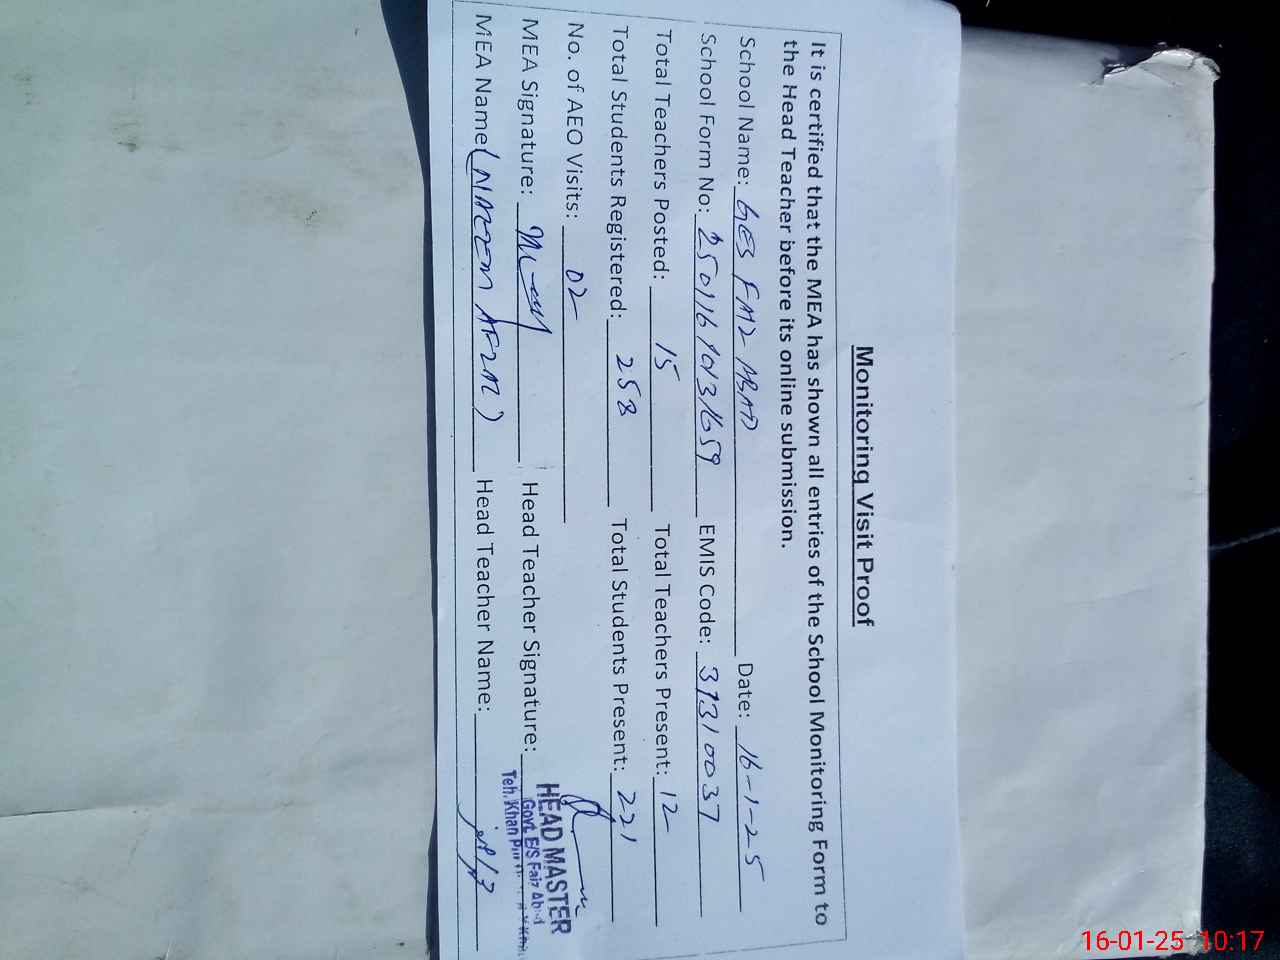 Monitoring Visit Proof
It is certified that the MEA has shown all entries of the School Monitoring Form to
the Head Teacher before its online submission.
School Name: GES FAIZ ABAD Date: 16-1-25
School Form No: EMIS Code: 31310037
Total Teachers Posted: 15 Total Teachers Present: 12
Total Students Registered: 258 Total Students Present: 221
No. of AEO Visits: 02
MEA Signature: Head Teacher Signature:
MEA Name: Head Teacher Name:
HEAD MASTER
Govt. E/S Faiz Abad
Teh. Khan Pur
16-01-25 10:17